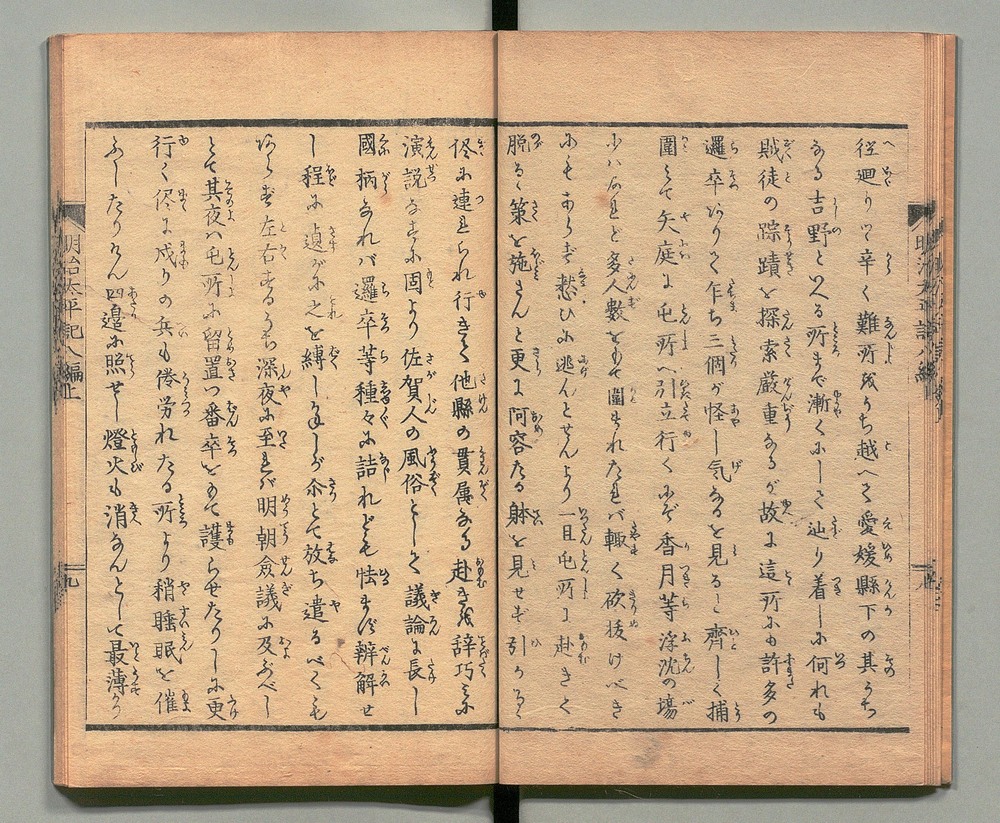 從廻りつ辛く難所をうち越へて愛媛縣下の其うち
なる吉野といへる所まで漸くにして辿り着しに何れも
賊徒の踪蹟を探索厳重なるが故に這所にも許多の
邏卒ありて乍ち三個が怪し気なるを見ると齊しく捕
圍て矢庭に屯所へ引立行くにぞ香月等浮沈の場
少ハあれど多人數をもて圍まれたれバ輙く砍抜けべき
にもあらず憖ひに逃んとせんより一旦屯所に赴きて
脱るゝ策を施さんと更に阿容たる躰を見せず引かるゝ
侭に連られ行きて他縣の貫属なる赴きを辞巧ミに
演説なすに固より佐賀人の風俗として議論に長し
國柄なれバ邏卒等種々に詰れども怯まず辨解せ
し程に遉がに之を縛しかねしが尒とて放ち遣るべくも
あらず左右するうち深夜に至れバ明朝僉議に及ぶべし
とて其夜ハ屯所に留置つ番卒をもて護らせたりしに更
行く侭に戍りの兵も倦労れたる所より稍睡眠を催
ふしたりけん四邉に照せし燈火も消なんとして最薄かり
明治太平記八編上
九